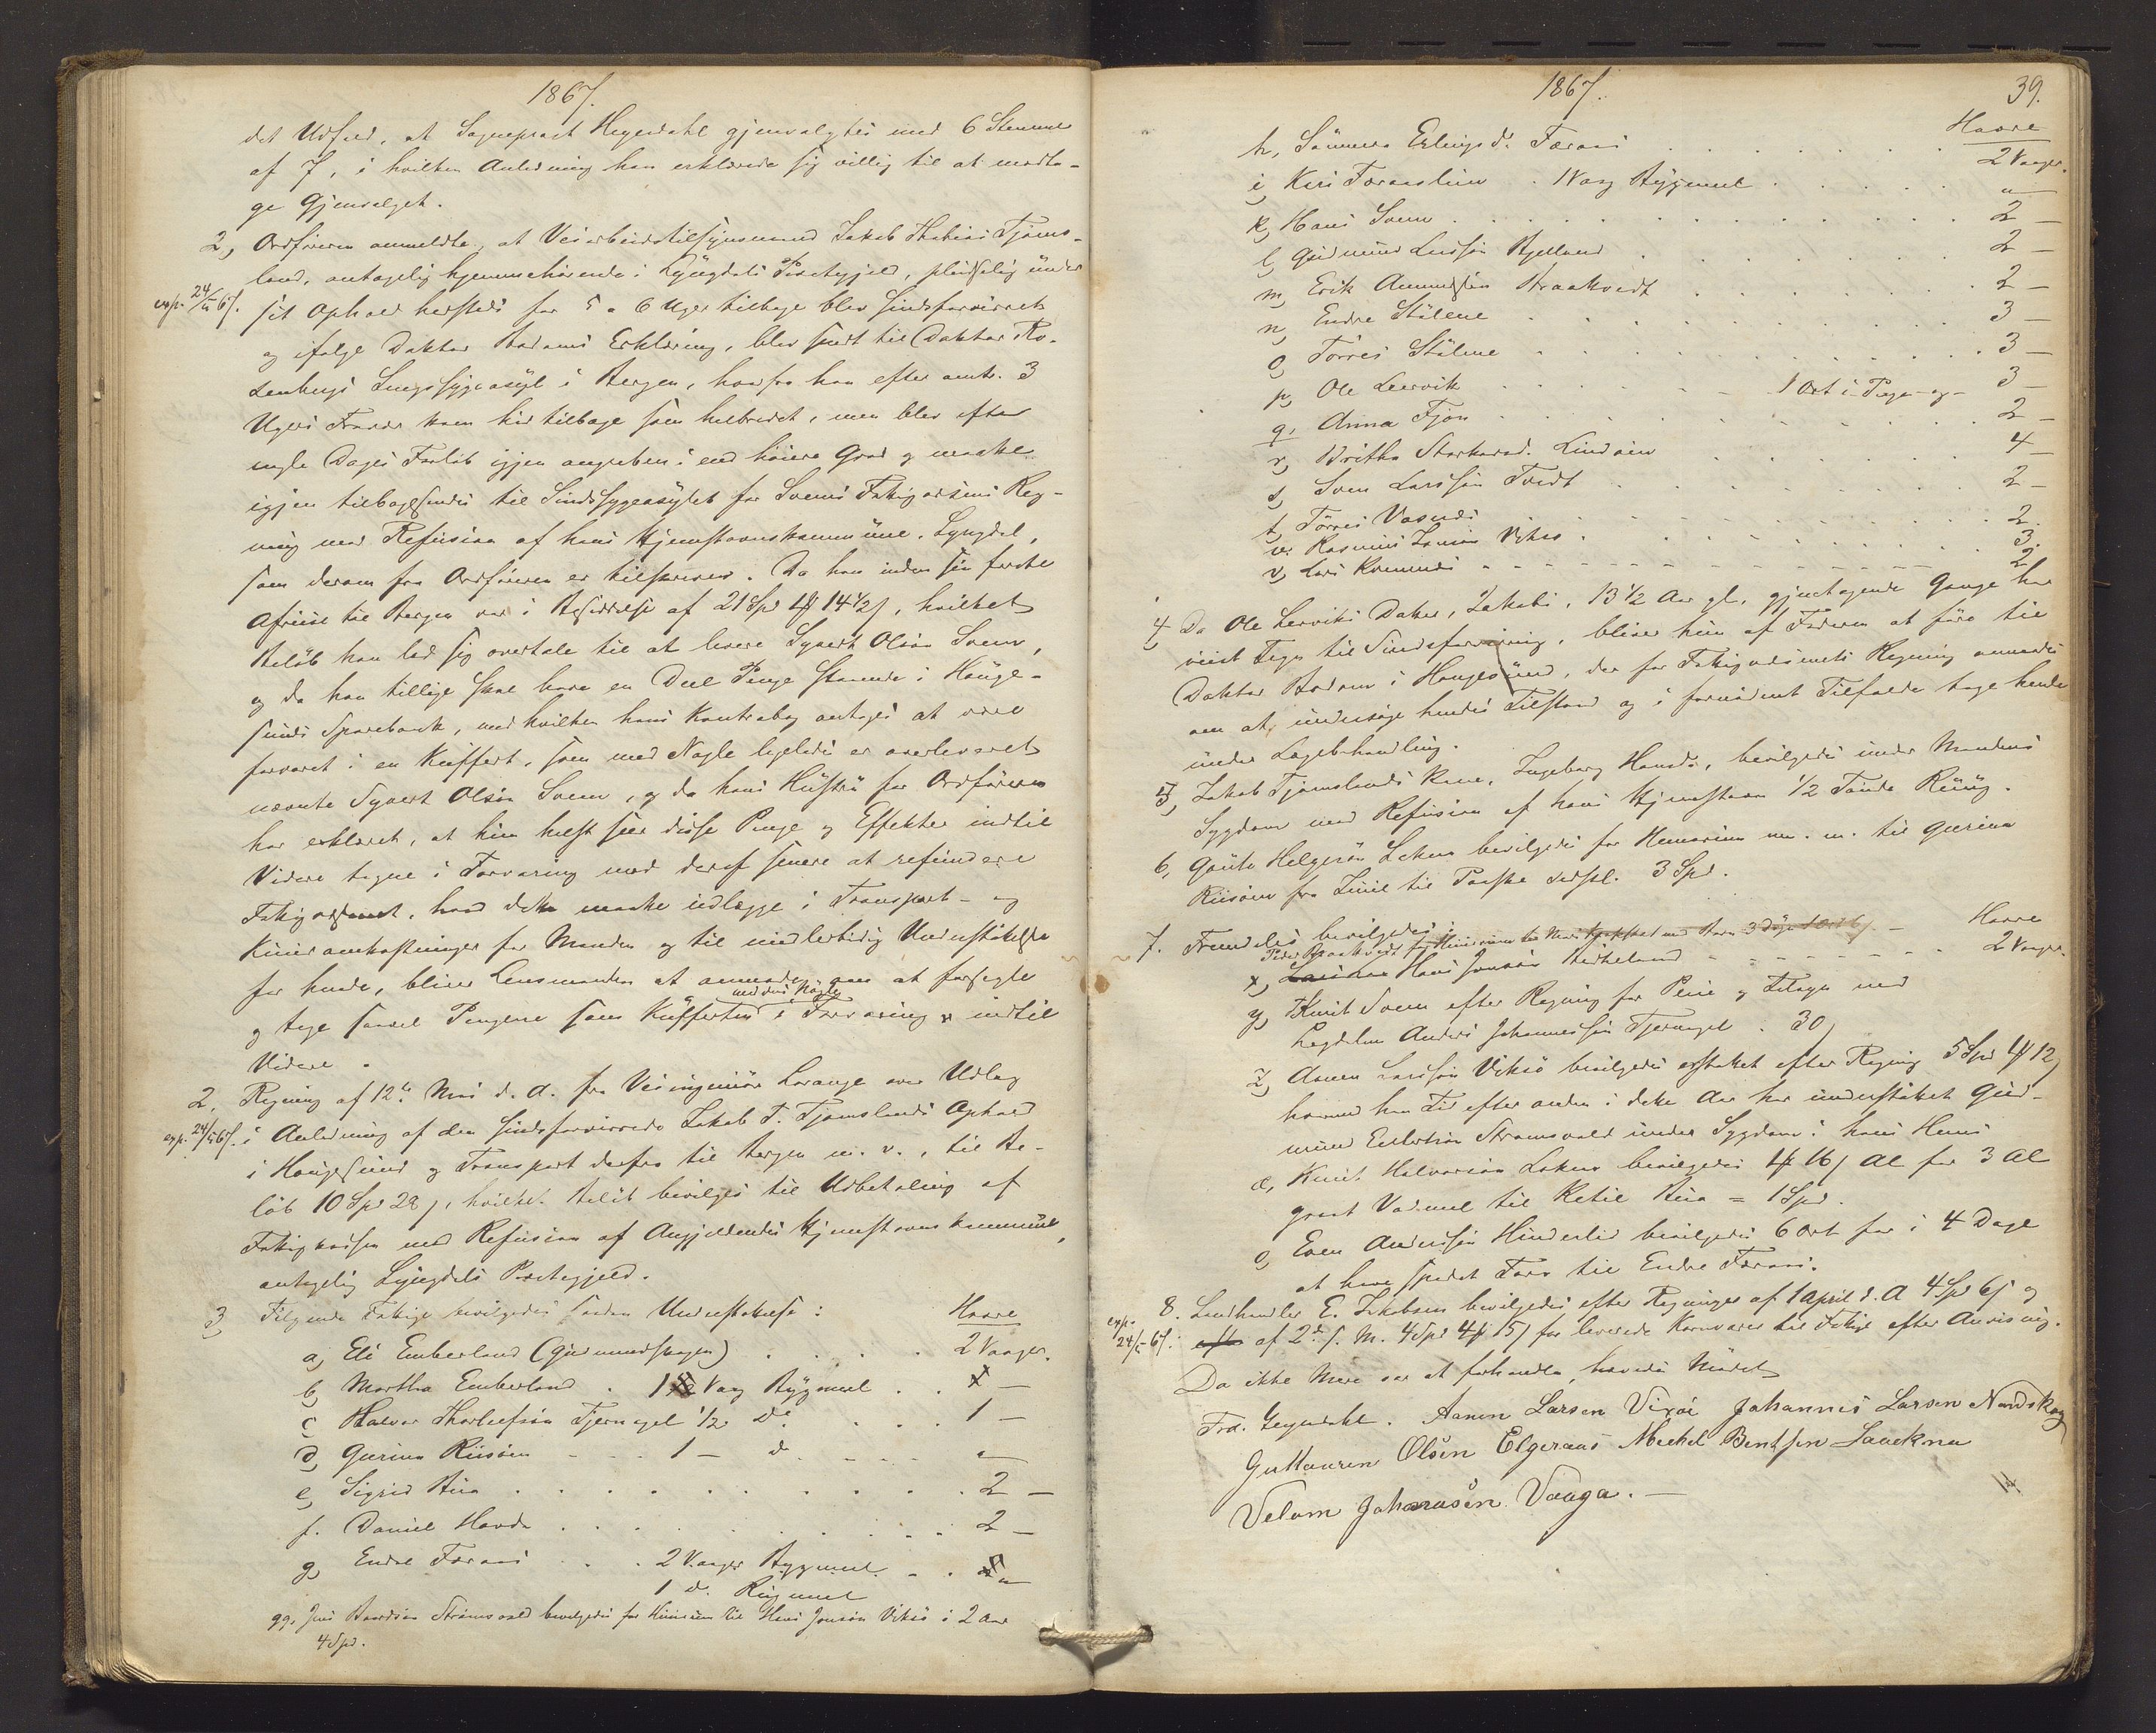 1867.
det Udfald, at Sognepræst Heyerdahl gjenvalgtes med 6 Stemmer
af 7, i hvilken Anledning han erklærede sig villig til at modta-
ge Gjenvalget.
2, Ordføreren anmeldte, at Veiarbeidstilsynsmand Jakob Tjøms-
land, antagelig hjemmehørende i Lyngdals Præstegjeld, pludselig under
exp. 24/5 67. sit Ophold hersteds for 5 a 6 Uger tilbage blev sindsforvirret
og ifølge Doktor Erklæring, blev sendt til Doktor Ro-
senbergs Sindssygeasyl i Bergen, hvorfra han efter omtr. 3
Ugers Fravær kom hid tilbage som helbredet, men blev efter
nogle Dages Forløb igjen angreben i end høiere Grad og maatte
igjen tilbagesendes til Sindssygeasylet for Sveens Fattigvæsens Reg-
ning mod Refusion af hans Hjemstavnskommune, Lyngdal,
som derom fra Ordføreren er tilskreven. Da han inden sin første
Afreise til Bergen var i Besiddelse af 21 Spd 14 1/2 s, hvilket
Beløb han lod sig overtale til at levere Sjvert Olsøn Sveen,
og da han tillige skal have en Deel Penge staaende i Hauge-
sunds Sparebank, med hvilken hans Kontrabog antages at være
forvaret i en Kuffert, som med Nøgle ligeledes er overleveret
nævnte Sjvert Olsøn Sveen, og da hans Hustru for Ordføreren
har erklæret, at hun helst seer disse Penge og Effekter indtil
Videre tagne i Forvaring med deraf senere at refundere
Fattigvæsenet, hvad dette maatte udlægge i Transport- og
Kuuromkostninger for Manden og til midlertidig Understøttelse
for hende, bliver Lensmanden at anmode om at forsegle
med dens Nøgle
og tage saavel Pengene som Kufferten i Forvaring indtil
Videre.
2, Regning af 12te Mai d. A. fra Veiingeniør Lorange over Udlæg
exp. 24/5 67. i Anledning af den sindsforvirrede Jakob T. Tjømslands Ophold
i Haugesund og Transport derfra til Bergen m. v., til Be-
løb 10 Spd 28 s, hvilket Beløb bevilges til Udbetaling af
Fattigkassen mod Refusion af Angjeldendes Hjemstavnskommune,
antagelig Lyngdals Præstegjeld.
3, Følgende Fattige bevilgedes saadan Understøttelse: Havre
a, Eli Emberland (Gudmundshagen) . . . . 2 Vaager.
b, Martha Emberland . 1 Vaag Bygmeel . . —
c, Halvor Thorleifsøn Tjernagel 1/2 do . . . 1 —
d, Gurina Riisøen - - - 1 — do - - - - "
e, Sigrid Bua . . . . . . . . . . . 2 —
f. Daniel Havde . . . . . . . . . . 2 —
g, Endre Færaas . . . 2 Vaager Bygmeel . . "
1 do. Rugmeel
gg, Jens Baardsøn Strømsvold bevilgedes for Huusrum til Hans Jonsøn Viksø i 2 Aar
4 Spd.
1867. 39.
Havre
h, Sønneva Erlingsd. Færaas . . . . . . . . 2 Vaager.
i, Kari Færaaslien . 1 Vaag Bygmeel . . . . . "
k, Hans Sveen . . . . . . . . . . . . 2 —
l, Gudmund Larssøn Hjelland . . . . . . . . 2 —
m, Erik Amundsøn Braakvedt . . . . . . . 2 —
n, Endre Stølene . . . . . . . . . . 3 —
o, Tørres Stølene . . . . . . . . . . 3 —
p, Ole Leervik . . . . - 1 Ort i Penge og - 3 —
q, Anna Fjon . . . . . . . . . . . 2 —
r, Britha Starkarsd. Lindøen . . . . . . . 4 —
s, Sven Larssøn Tvedt . . . . . . . . . 2 —
t, Tørres Vasnæs . . . . . . . . . . 2.
u, Rasmus Viksø . . . . . . . . . . 3.
v, Lars Kvennæs - - - - - - - - - - 2
4, Da Ole Lerviks Datter, Jakobi, 13 1/2 Aar gl., gjentagende Gange har
viist Tegn til Sindsforvirring, bliver hun af Faderen at føre til
Doktor i Haugesund, der for Fattigvæsenets Regning anmodes
om at undersøge hendes Tilstand og i fornødent Tilfælde tage hende
under Lægebehandling.
5, Jakob Tjømslands Kone, Ingeborg Hansd., bevilgedes under Mandens
Sygdom mod Refusion af hans Hjemstavn 1/2 Tønde Rug.
6, Gaute Helgesøn Lokna bevilgedes for Huusrum m. m. til Gurina
Riisøen fra Juul til Paaske sidstl. 3 Spd.
7. Fremdeles bevilgedes: Havre
x, Hans Jonsøn Birkeland - - - - - - . 2 Vaager.
y, Knut Sveen efter Regning for Pleie og Tilsyn med
Lægdslem Anders Johannessøn Tjernagel . 30 s
z, Aanen Larssøn Viksø bevilgedes erstattet efter Regning 5 Spd 12 s
hvormed han Tid efter anden i dette Aar har understøttet Gud-
mund Strømsvold under Sygdom i hans Huus
æ, Knut Halvorsøn Lokna bevilgedes 16 s Al for 3 Al
graat Vadmel til Ketil Bua = 1 Spd.
ø, Even Anderssøn Hinderlid bevilgedes 6 Ort for i 4 Dage
at have spadet Torv til Endre Færaas.
exp. 24/5 67. 8. Landhandler E. Jakobsen bevilgedes efter Regninger af 1 April d. A 4 Spd 6 s og
af 2de s. M. 4 Spd 15 s for leverede Kornvarer til Fattige efter Anvisning.
Da ikke Mere var at forhandle, hævedes Mødet
Frd. Heyerdahl. Aanen Larsen Vixøe Johannis Larsen Nordskog
Guttormsen Olsen Elgeraas Meekel Bentsen Laackna
Velom Johanason Vaaga. —